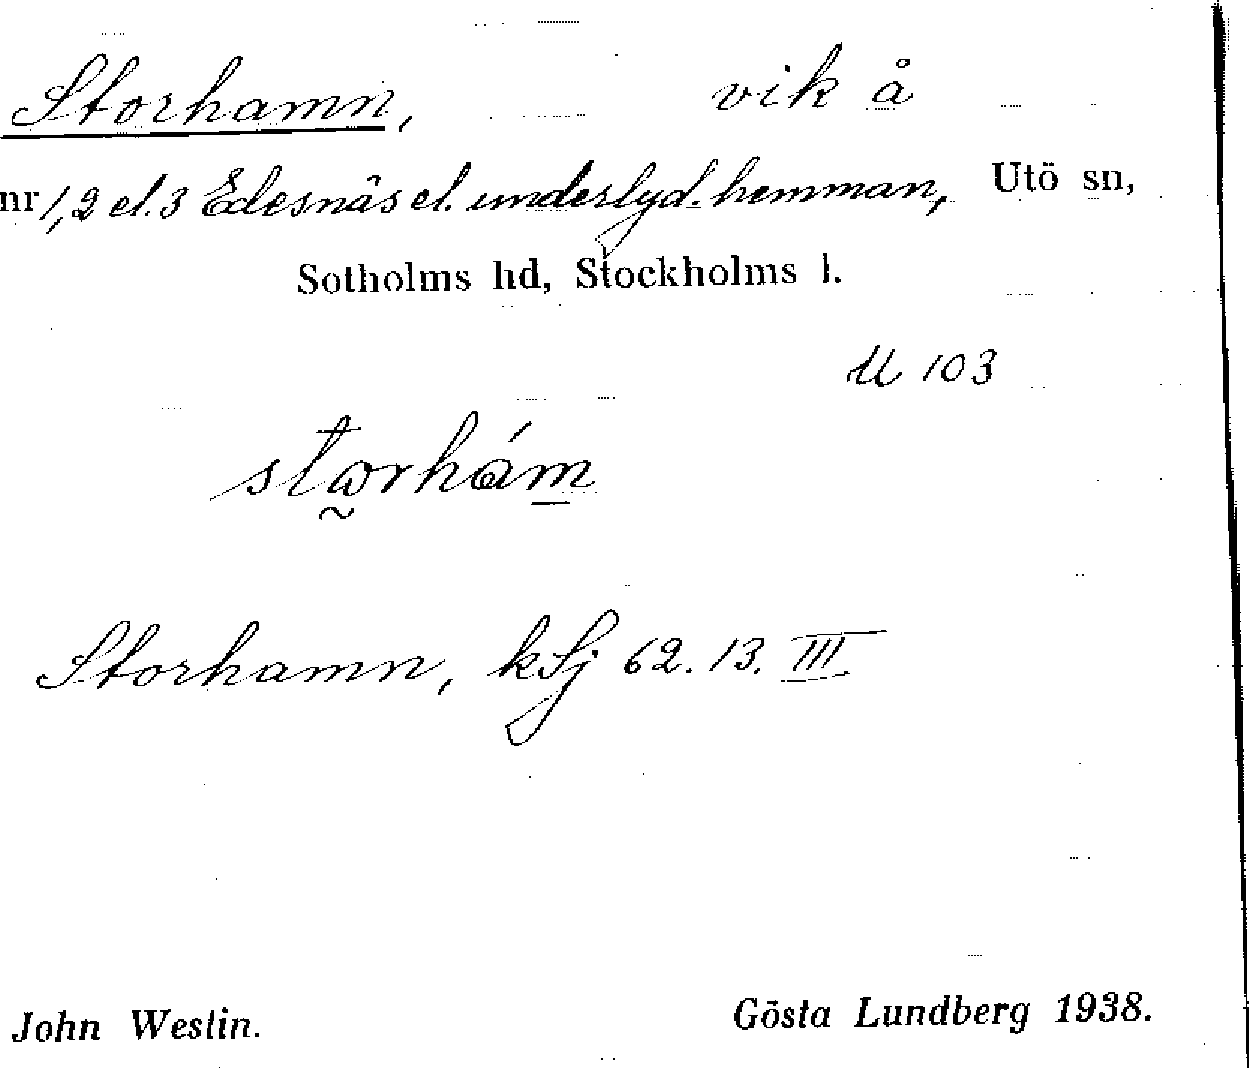 Storhamn, vik å
nr 1, 2 el. 3 Edesnäs el. underlyd. hemman, Utö sn,
Sotholms hd, Stockholms l.
U 103
storhám
Storhamn, kSj 62. 13. III
John Westin. Gösta Lundberg 1938.